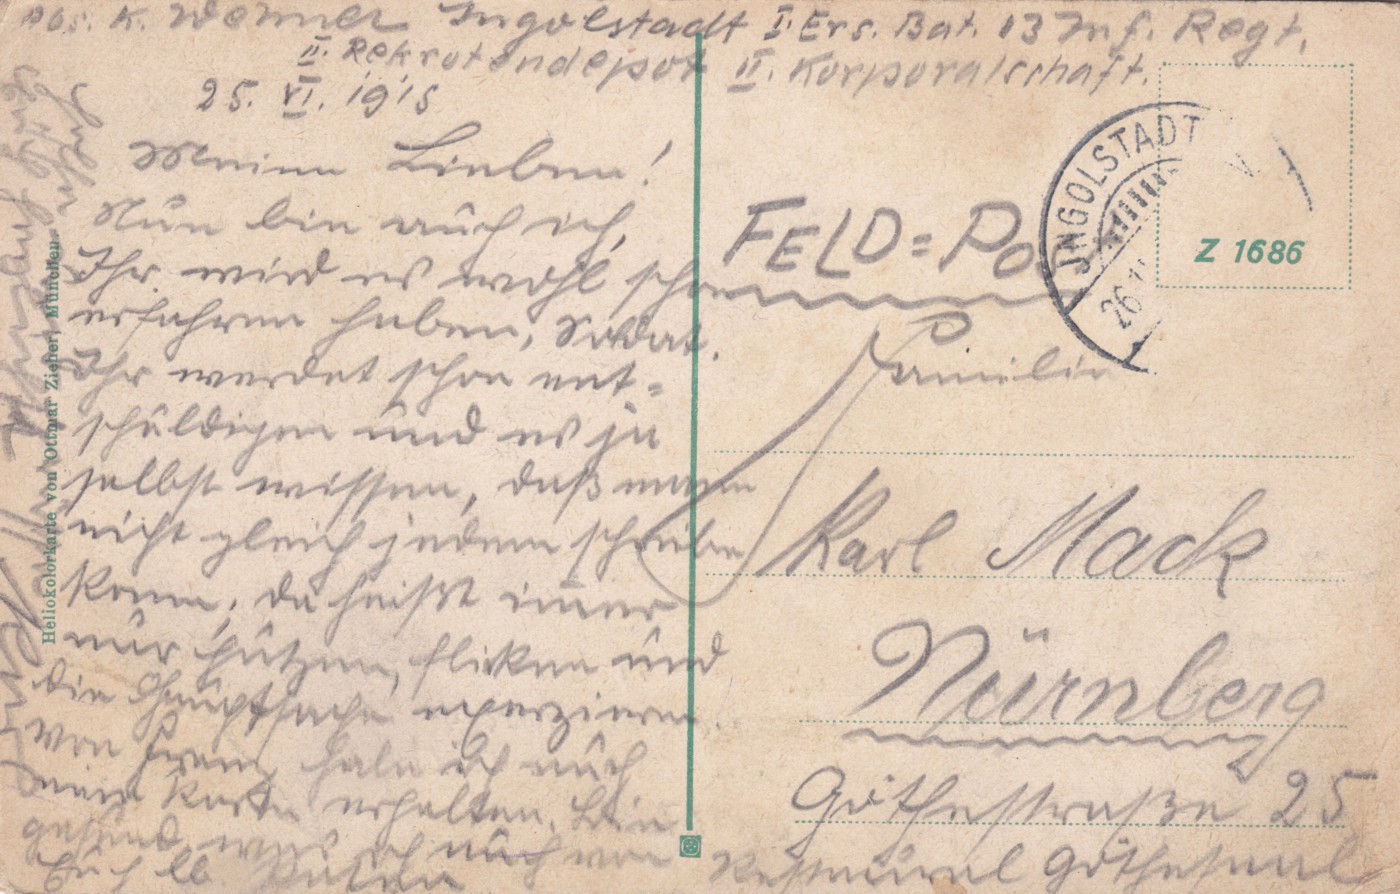 K. Wenner Ingolstadt I. Ers. Bat. 13 Inf. Regt.
II. Rekrutendepot II. Korporalschaft.
25. VI. 1915
Meine Lieben!
Nun bin auch ich,
Ihr wird es wohl schon
erfahren haben, Soldat.
Ihr werdet schon ent-
schuldigen und es ja
selbst wissen, daß man
nicht gleich jedem schreiben
kann, da heißt immer
nur putzen, flicken und
die Hauptsache exerzieren.
von Franz habe ich auch
eine Karte erhalten. Bin
gesund was ich auch von
Euch lb.
FELD=Po
INGOLSTADT
26
Z 1686
Familie
Karl Mack
Nürnberg
Göthestraße 25
Restaurat Göthesaal
Heliokolorkarte von Ottmar Zieher, München.